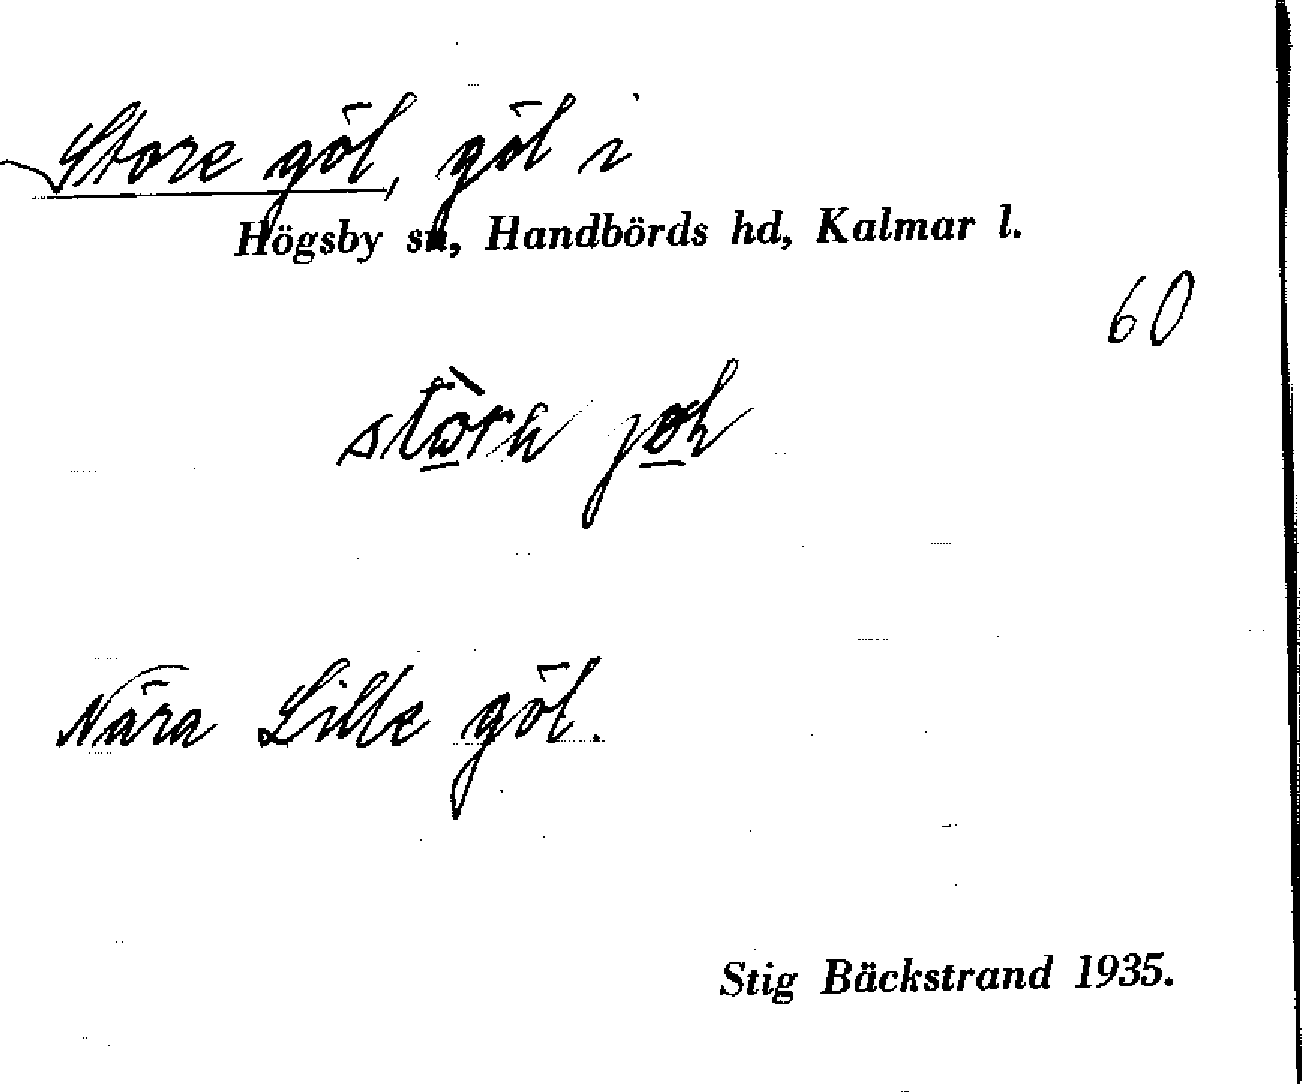 Store göl, göl i
Högsby sn, Handbörds hd, Kalmar l.
60
Nära Lille göl.
Stig Bäckstrand 1935.